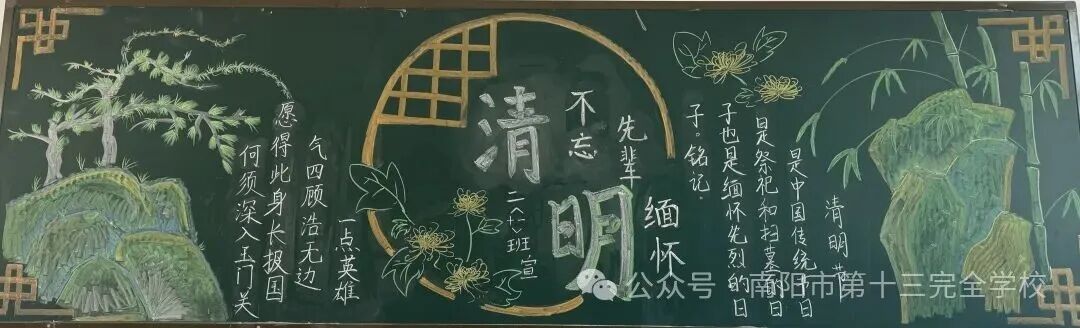 清明
不忘
先辈
缅怀
班宣
清明节
是中国传统节日
是祭祀和扫墓的日
子也是缅怀先烈的日
子。铭记.
一点英雄
气四顾浩无边
愿得此身长报国
何须深入玉门关
公众号 · 南阳市第十三完全学校